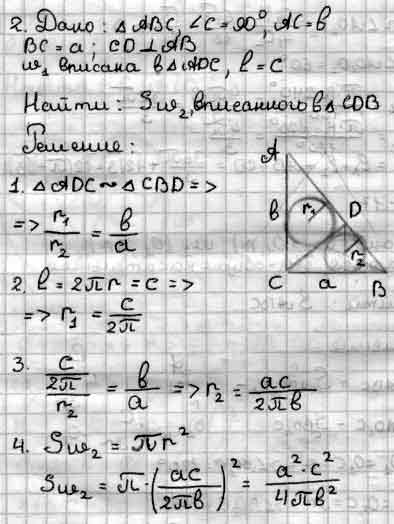 2. Дано: △ABC, ∠C=90°, AC=b
BC=a; CD⊥AB
ω₁ вписана в △ADC, l=c
Найти: Sω₂, вписанного в △CDB
Решение:
1. △ADC~△CBD=>
=> r₁/r₂ = b/a
2. l=2πr=c=>
=> r₁ = c/2π
3. (c/2π)/r₂ = b/a => r₂ = ac/2πb
4. Sω₂ = πr²
Sω₂ = π·(ac/2πb)² = a²·c²/4πb²
A
r₁
D
b
r₂
C
a
B